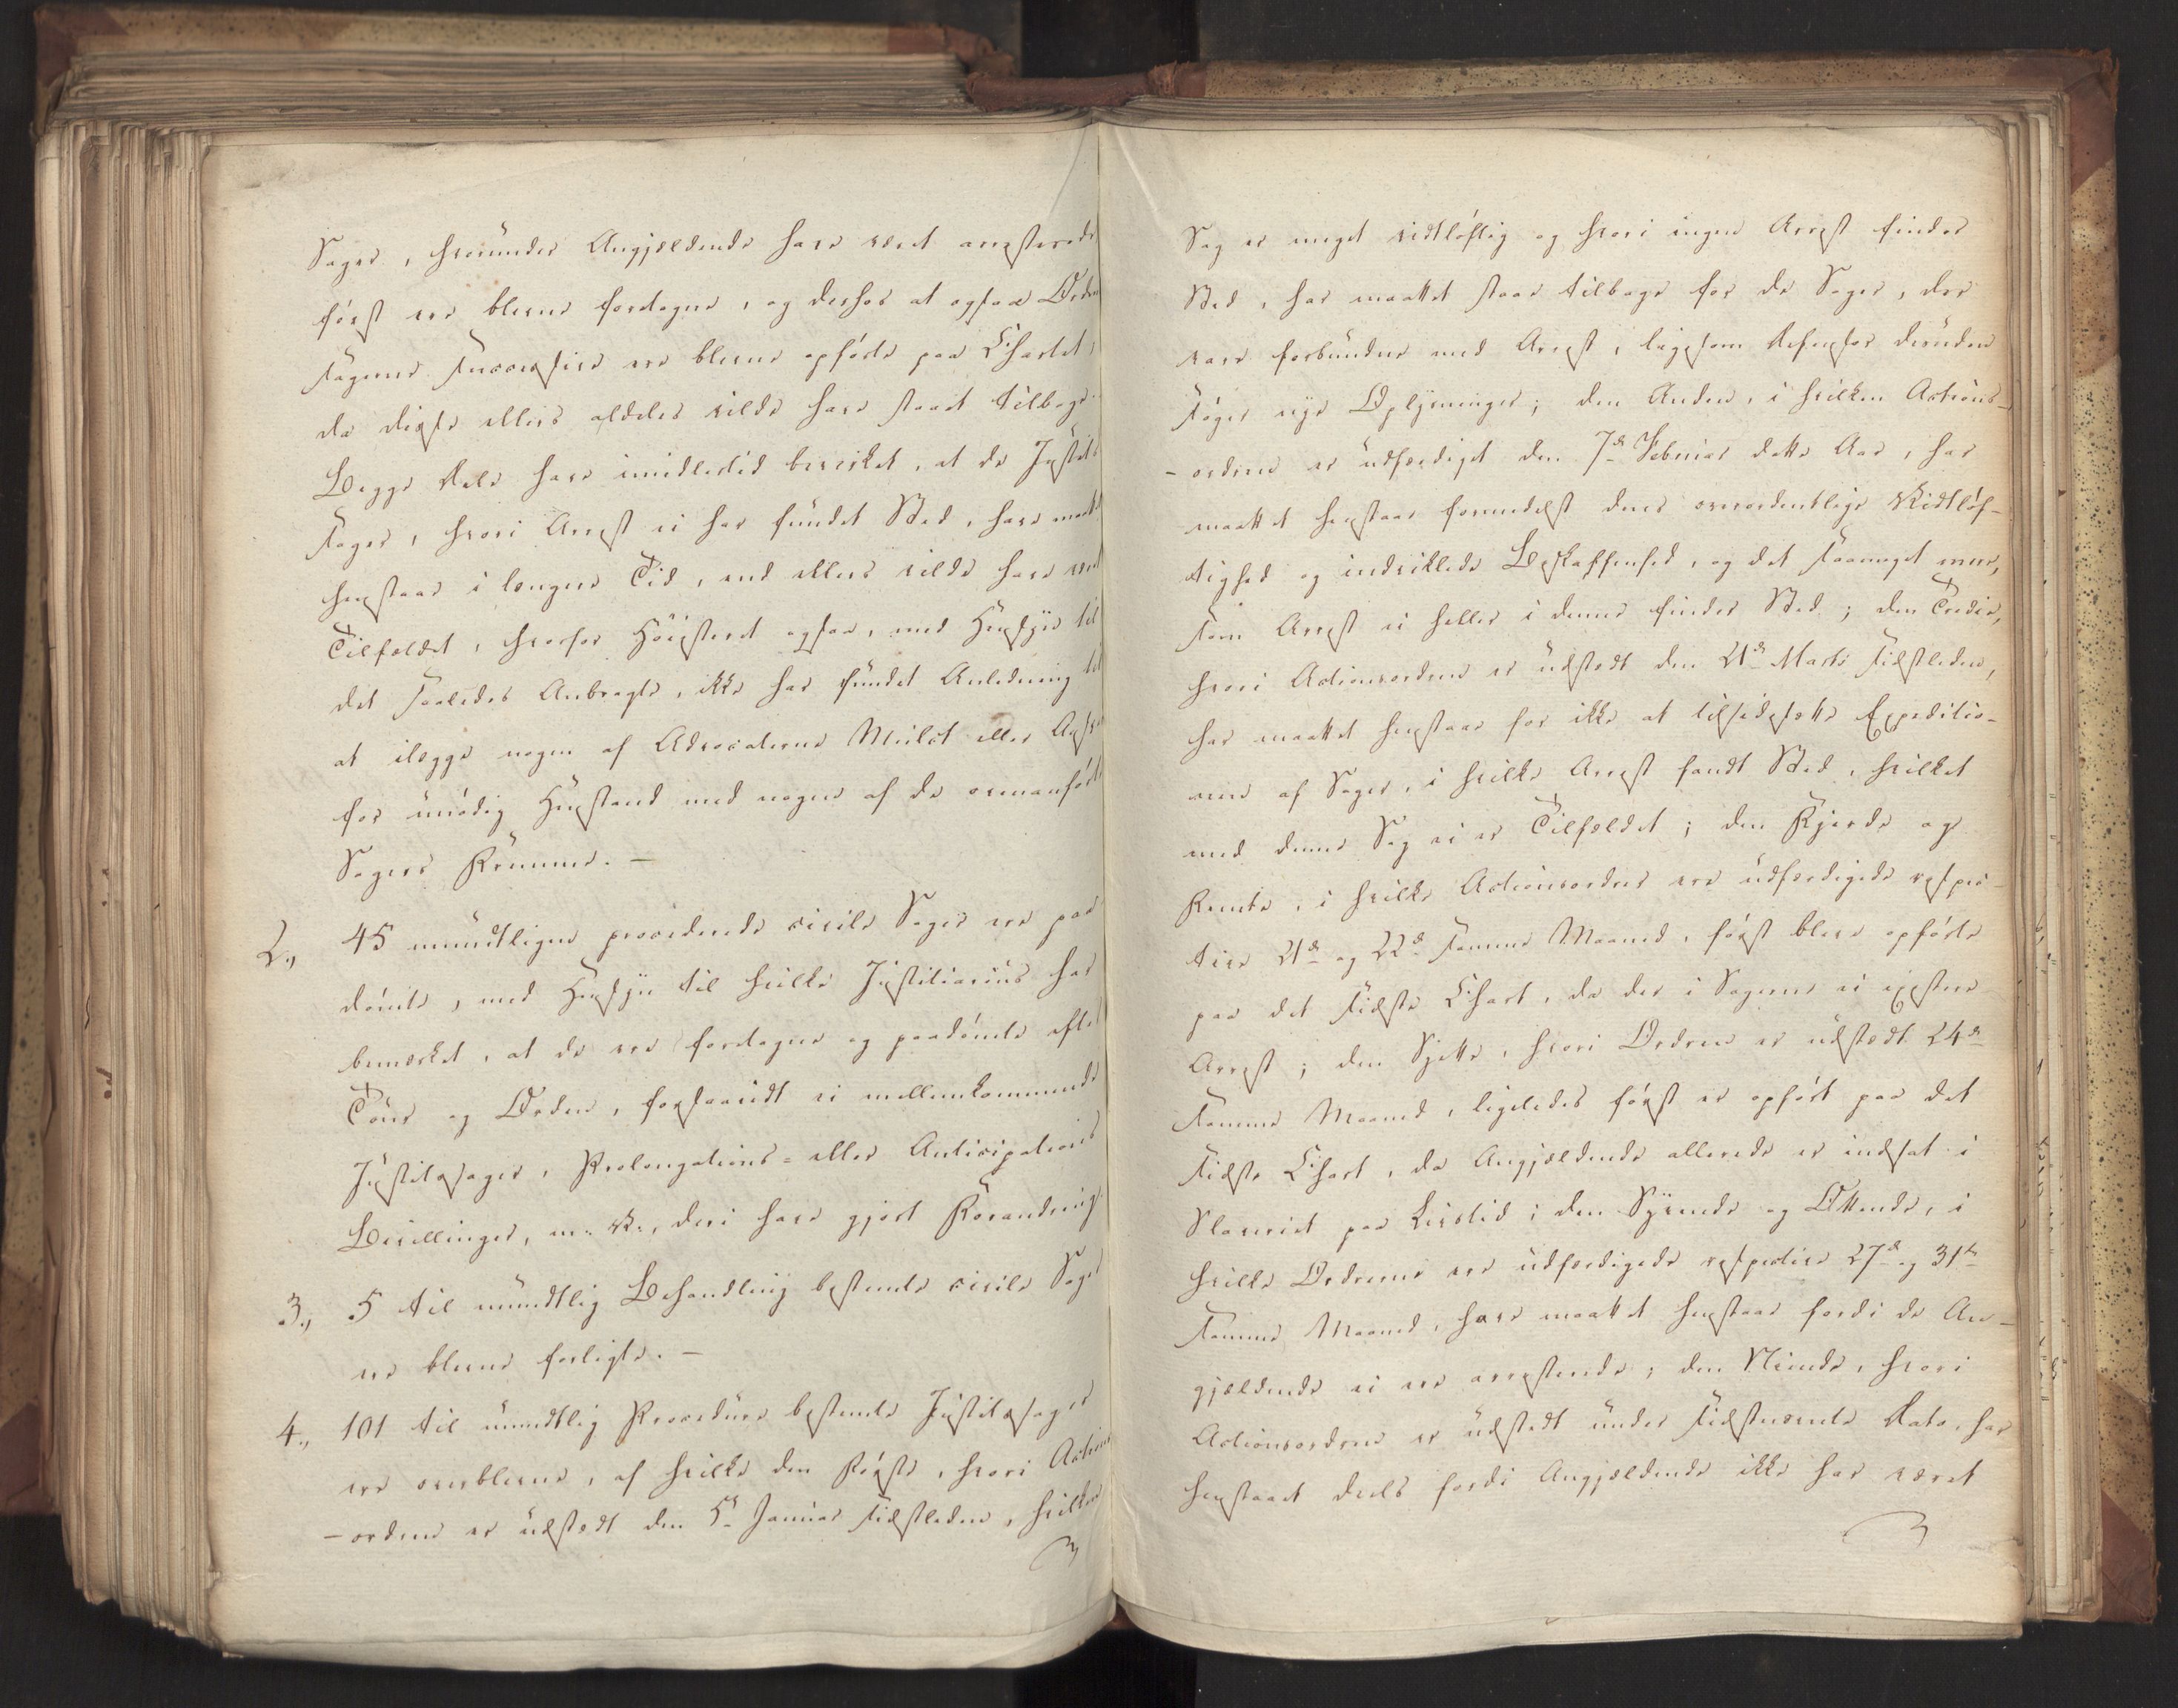 Sager, hvorunder Angjældende have været arresterede
først ere blevne foretagne, og derhos at ogsaa Ordre
sagerne successive ere blevne opførte paa Chartet,
da disse ellers aldeles vilde have staaet tilbage.
Begge Dele have imidlertid bevirket, at de Justits
sager, hvori Arrest ei har fundet Sted, have maatt
henstaae i længere Tid, end ellers vilde have været
Tilfældet, hvorfor Höiesteret ogsaa, med Hensyn til
det saaledes Anbragte, ikke har fundet Anledning til
at ilægge nogen af Advocaterne Mulct eller Ansvar
for unödig Henstand med nogen af de ovenanførte
Sagers Fremme. —
2., 45 mundtligen procederede civile Sager ere paa
dömte, med Hensyn til hvilke Justitiarius har
bemærket, at de ere foretagne og paadömte efter
Tour og Orden, forsaavidt ei mellemkommende
Justitssager, Prolongations= eller Anticipations
Bevillinger, m: V:, deri have gjort Forandring.
3., 5 til mundtlig Behandling bestemte civile Sager
ere blevne forligte. —
4., 101 til mundtlig Procedure bestemte Justitssager
ere overblevne, af hvilke den Förste, hvori Actions
- ordren er udstedt den 5te Januar sidstleden, hvilken
Sag er meget vidtløftig og hvori ingen Arrest finder
Sted, har maattet staae tilbage for de Sager, der
vare forbundne med Arrest, ligesom Defensor desuden
søger nye Oplysninger; den Anden, i hvilken Actions-
- ordren er udfærdiget den 7de Februar dette Aar, har
maattet henstaae formedelst dens overordentlige Vidtløf-
tighed og indviklede Beskaffenhed, og det saameget mere,
som Arrest ei heller i denne finder Sted; den Tredie,
hvori Actionsordren er udstedt den 21de Marts sidstleden,
har maattet henstaae for ikke at tilsidesætte Expeditio-
nen af Sager, i hvilke Arrest fandt Sted, hvilket
med denne Sag ei er Tilfældet; den Fjerde og
Femte, i hvilke Actionsordrer ere udfærdigede respec-
tive 21de og 22de samme Maaned, først bleve opførte
paa det sidste Chart, da der i Sagerne ei existere
Arrest; den Sjette, hvori Ordren er udstedt 24de
samme Maaned, ligeledes først er opført paa det
sidste Chart, da Angjældende allerede er indsat i
Slaveriet paa Livstid; den Syvende og Ottende, i
hvilke Ordrerne ere udfærdigede respective 27de og 31te
samme Maaned, have maattet henstaae fordi de An-
gjældende ei ere arresterede; den Niende, hvori
Actionsordren er udstedt under sidstnævnte Dato, har
henstaaet deels fordi Angjældende ikke har været